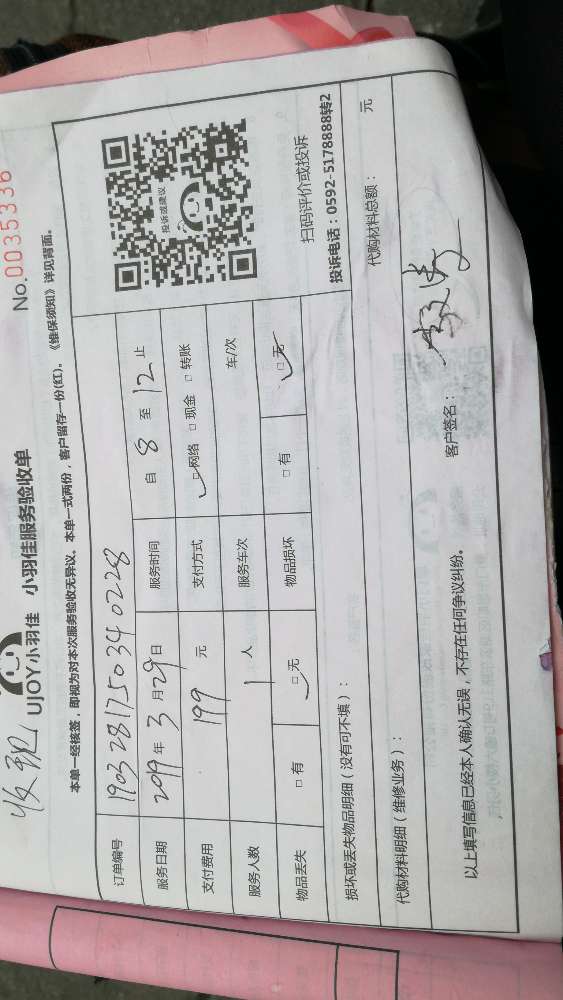 No.0035336
UJOY小羽佳 小羽佳服务验收单
本单一经核签，即视为对本次服务验收无异议。本单一式两份，客户留存一份(红)。《维保须知》详见背面。
订单编号 190328175034 0228 自 8 至 12 止
服务日期 2019 年 3 月 29 日 服务时间
支付费用 199 元 支付方式 □网络 □现金 □转账
服务人数 1 人 服务车次 车/次
物品丢失 □有 □无 物品损坏 □有 □无
投诉或建议
扫码评价或投诉
投诉电话：0592-5178888转2
损坏或丢失物品明细（没有可不填）：
代购材料明细（维修业务）： 代购材料总额： 元
以上填写信息已经本人确认无误，不存在任何争议纠纷。 客户签名：